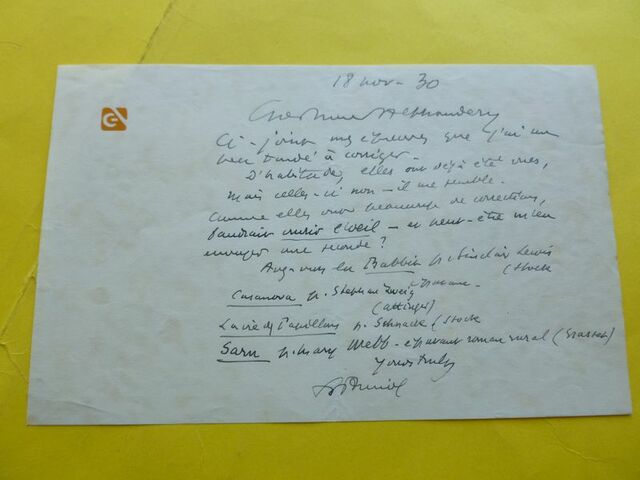 18 nov. 30
Chère Mme Alphandéry
Ci-joint mes épreuves que j'ai un
peu tardé à corriger.
D'habitude, elles ont déjà été vues,
mais celles-ci non - il me semble.
Comme elles ont beaucoup de corrections,
faudrait ouvrir l'œil - et peut-être m'en
envoyer une seconde ?
Avez-vous lu Babbitt p. Sinclair Lewis
(Stock
Casanova p. Stephan Zweig
(Attinger)
La vie des Papillons p. Schnack (Stock
Sarn p. Mary Webb - épatant roman rural (Grasset)
Yours truly